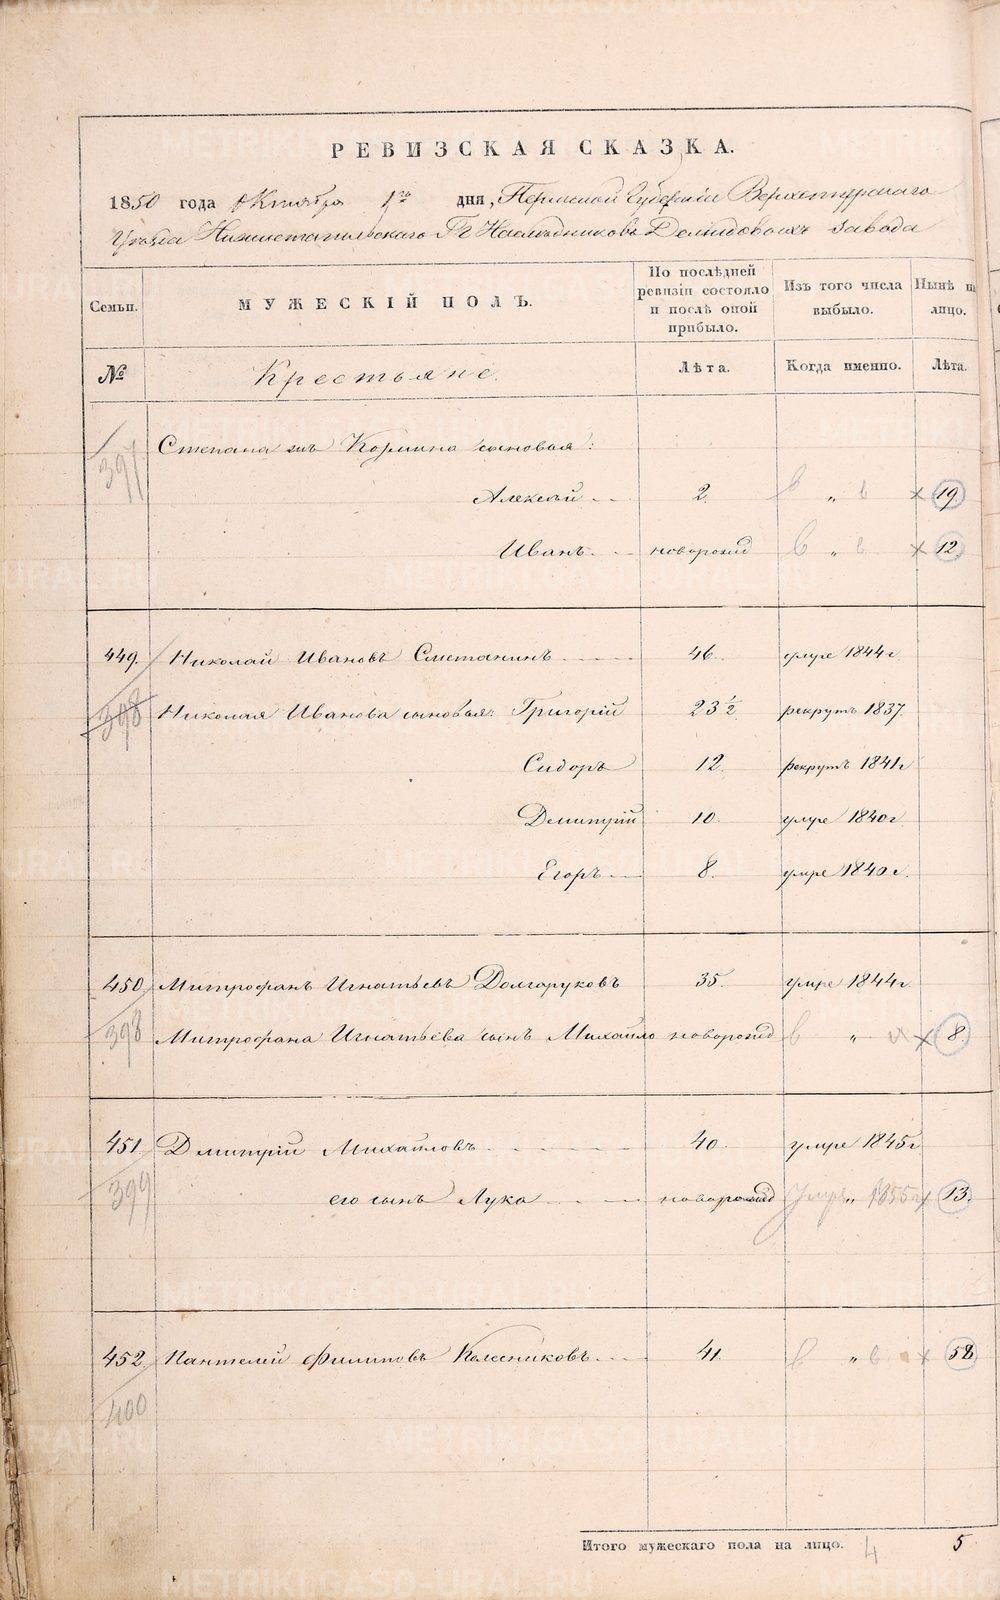 РЕВИЗСКАЯ СКАЗКА.
1850 года Октября 1го дня, Пермской Губерніи Верхотурскаго
Уѣзда Нижнетагильскаго Гг Наслѣдниковъ Демидовыхъ завода
Семьи. МУЖЕСКІЙ ПОЛЪ. По послѣдней ревизіи состояло и послѣ оной прибыло. Изъ того числа выбыло. Нынѣ на лицо.
№ Крестьяне. Лѣта. Когда именно. Лѣта.
397 Степана сыновья:
Алексѣй 2. „ 19.
Иванъ новорожд „ 12.
449. Николай Ивановъ Сметанинъ 46. умре 1844 г
398 Николая Иванова сыновья: Григорій 23 1/2 рекрутъ 1837.
Сидоръ 12. рекрутъ 1841 г
Дмитрій 10. умре 1840 г.
Егоръ 8. умре 1840 г.
450. Митрофанъ Игнатьевъ Долгоруковъ 35. умре 1844 г.
398 Митрофана Игнатьева сынъ Михайло новорожд „ 8.
451. Дмитрій Михайловъ 40. умре 1845 г
399 его сынъ Лука новорожд умре „ 1855 г 13.
452. Пантелей Филиповъ Колесниковъ 41. „ 58
400
Итого мужескаго пола на лицо. 4 5
METRIKI.GASO-URAL.RU